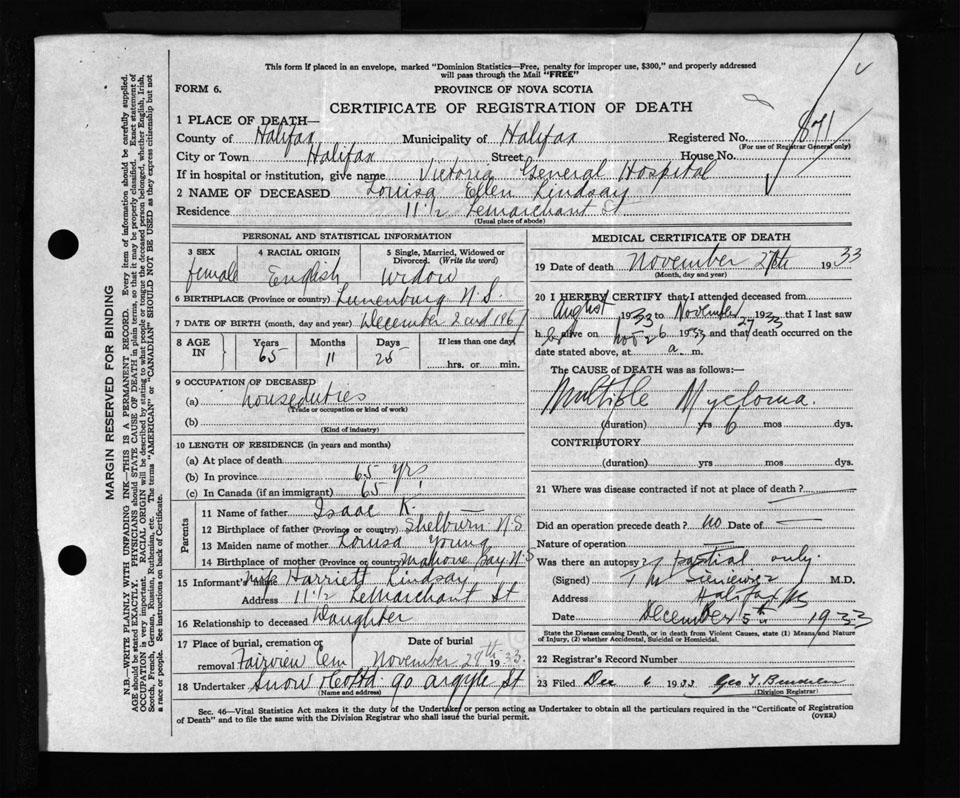 This form if placed in an envelope, marked "Dominion Statistics—Free, penalty for improper use, $300," and properly addressed
will pass through the Mail "FREE"
FORM 6.
PROVINCE OF NOVA SCOTIA
CERTIFICATE OF REGISTRATION OF DEATH
1 PLACE OF DEATH—
County of Halifax Municipality of Halifax Registered No. 871
(For use of Registrar General only)
City or Town Halifax Street House No.
If in hospital or institution, give name Victoria General Hospital
2 NAME OF DECEASED Louisa Ellen Lindsay
Residence 11 1/2 LeMarchant St
(Usual place of abode)
PERSONAL AND STATISTICAL INFORMATION
3 SEX 4 RACIAL ORIGIN 5 Single, Married, Widowed or
Divorced. (Write the word)
female English Widow
6 BIRTHPLACE (Province or country) Lunenburg N.S.
7 DATE OF BIRTH (month, day and year) December 2nd 1867
8 AGE IN Years Months Days If less than one day
65 11 25 hrs. or min.
9 OCCUPATION OF DECEASED
(a) houseduties
(Trade or occupation or kind of work)
(b)
(Kind of industry)
10 LENGTH OF RESIDENCE (in years and months)
(a) At place of death
(b) In province 65 yrs
(c) In Canada (if an immigrant) 65
Parents
11 Name of father Isaac K.
12 Birthplace of father (Province or country) Shelburn N.S
13 Maiden name of mother Louisa Young
14 Birthplace of mother (Province or country) Mahone Bay N.S
15 Informant's name Harriett Lindsay
Address 11 1/2 LeMarchant St
16 Relationship to deceased Daughter
17 Place of burial, cremation or removal Date of burial
Fairview Cem November 29th 1933
18 Undertaker Snow & Co Ltd 90 Argyle St
(Name and address)
MEDICAL CERTIFICATE OF DEATH
19 Date of death November 27th 1933
(Month, day and year)
20 I HEREBY CERTIFY that I attended deceased from
August 1933 to November 27 1933 that I last saw
her alive on Nov 26 1933 and that death occurred on the
date stated above, at a. m.
The CAUSE of DEATH was as follows:—
Multiple Myeloma.
(duration) yrs 6 mos dys.
CONTRIBUTORY
(duration) yrs mos dys.
21 Where was disease contracted if not at place of death?
Did an operation precede death? no Date of
Nature of operation
Was there an autopsy? partial only.
(Signed) T M Sieniewicz M.D.
Address Halifax NS
Date December 5th 1933
State the Disease causing Death, or in death from Violent Causes, state (1) Means and Nature
of Injury, (2) whether Accidental, Suicidal or Homicidal.
22 Registrar's Record Number
23 Filed Dec 6 1933 Geo T.
(Division Registrar)
Sec. 46—Vital Statistics Act makes it the duty of the Undertaker or person acting as Undertaker to obtain all the particulars required in the "Certificate of Registration
of Death" and to file the same with the Division Registrar who shall issue the burial permit.
(OVER)
MARGIN RESERVED FOR BINDING
N.B.—WRITE PLAINLY WITH UNFADING INK—THIS IS A PERMANENT RECORD. Every item of information should be carefully supplied.
AGE should be stated EXACTLY. PHYSICIANS should STATE CAUSE OF DEATH in plain terms, so that it may be properly classified. Exact statement of
OCCUPATION is very important. RACIAL ORIGIN will be described by stating to what people or tongue the deceased person belonged, whether English, Irish,
Scotch, French, German, Russian, Ruthenian, etc. The terms "AMERICAN" or "CANADIAN" SHOULD NOT BE USED as they express citizenship but not
a race or people. See instructions on back of Certificate.